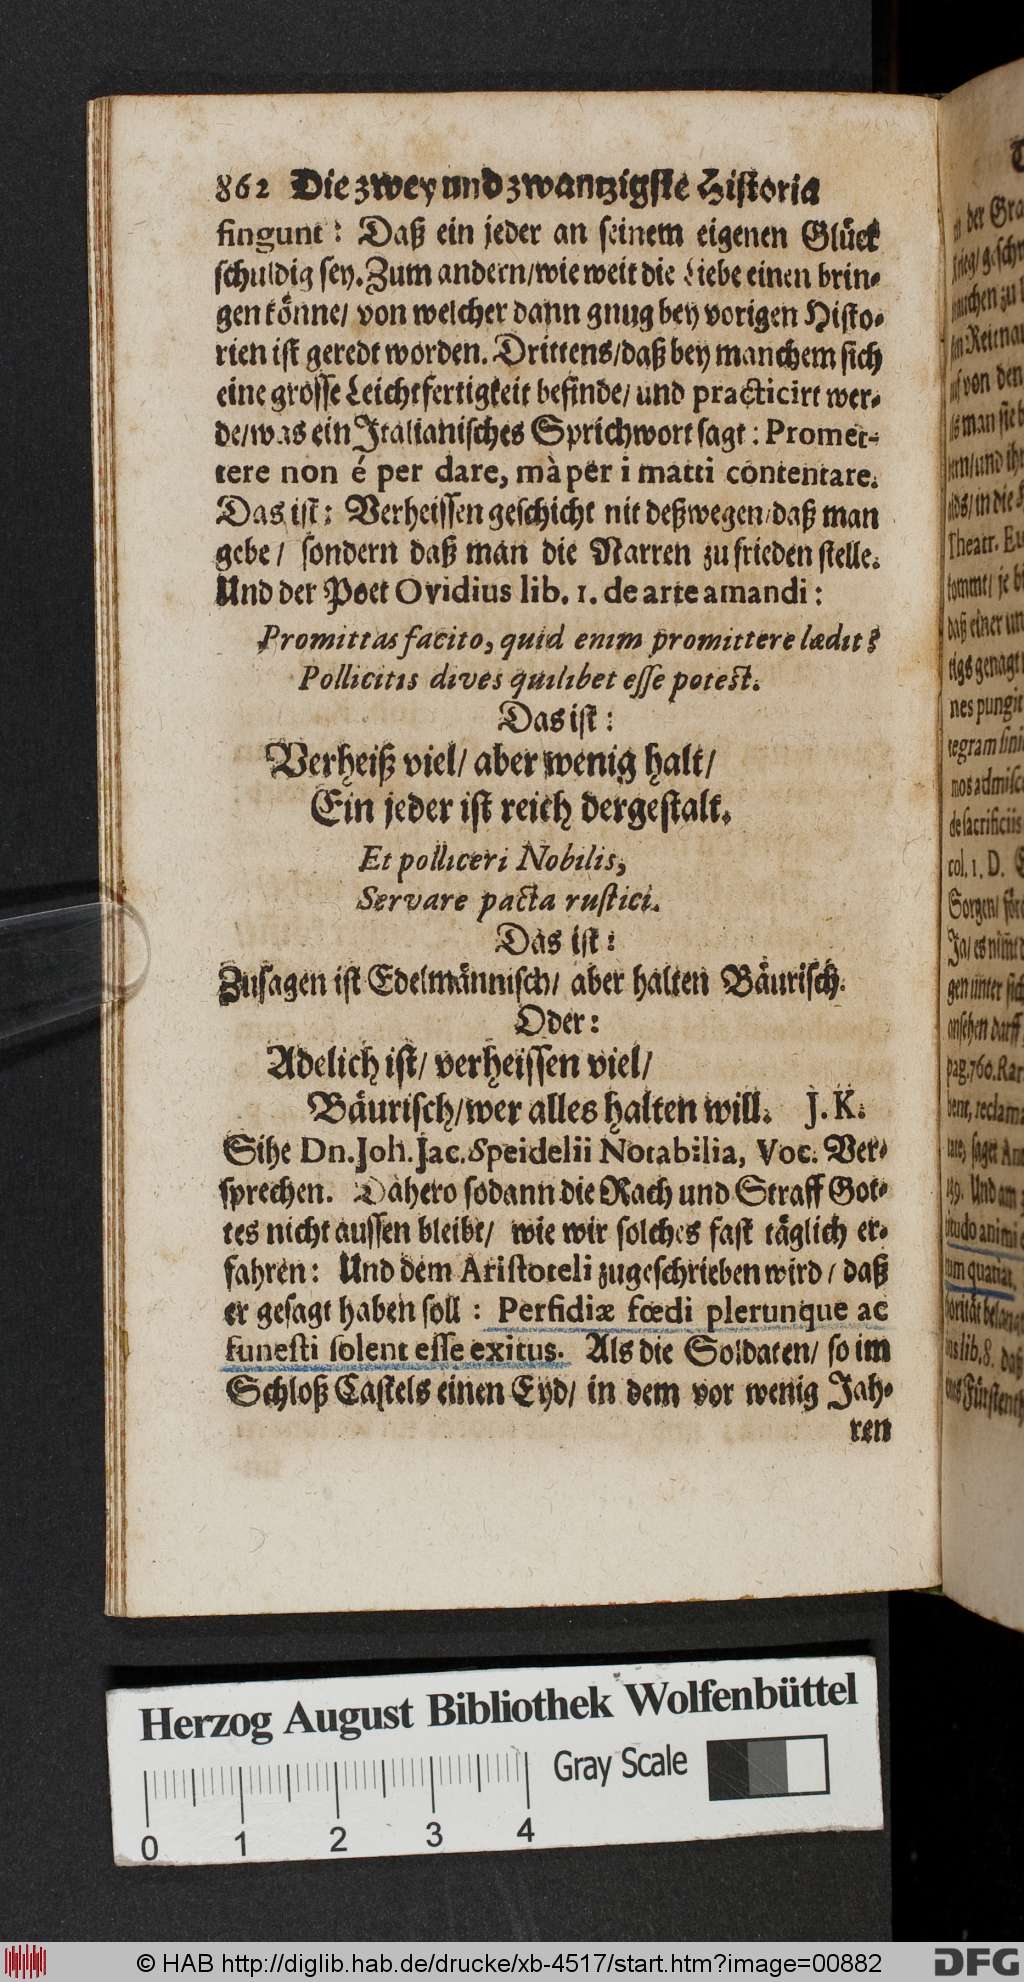 862 Die zwey und zwantzigste Historia
fingunt: Daß ein jeder an seinem eigenen Glück
schuldig sey. Zum andern/ wie weit die Liebe einen brin-
gen könne/ von welcher dann gnug bey vorigen Histo-
rien ist geredt worden. Drittens/ daß bey manchem sich
eine grosse Leichtfertigkeit befinde/ und practicirt wer-
de/ was ein Italianisches Sprichwort sagt: Promet-
tere non é per dare, mà per i matti contentare.
Das ist: Verheissen geschicht nit deßwegen/ daß man
gebe/ sondern daß man die Narren zu frieden stelle.
Und der Poet Ovidius lib. 1. de arte amandi:
Promittas facito, quid enim promittere lædit?
Pollicitis dives quilibet esse potest.
Das ist:
Verheiß viel/ aber wenig halt/
Ein jeder ist reich dergestalt.
Et polliceri Nobilis,
Servare pacta rustici.
Das ist:
Zusagen ist Edelmännisch/ aber halten Bäurisch.
Oder:
Adelich ist/ verheissen viel/
Bäurisch/ wer alles halten will. J. K.
Sihe Dn. Joh. Jac. Speidelii Notabilia, Voc. Ver-
sprechen. Dahero sodann die Rach und Straff Got-
tes nicht aussen bleibt/ wie wir solches fast täglich er-
fahren: Und dem Aristoteli zugeschrieben wird/ daß
er gesagt haben soll: Perfidiæ fœdi plerunque ac
funesti solent esse exitus. Als die Soldaten/ so im
Schloß Castels einen Eyd/ in dem vor wenig Jah-
ren
der Gra
von den
man sie b
Theatr. Eu
kommt/ je b
daß einer un
tigs genagt
nes pungit
tegram
de sacrificiis
col. 1. D.
Sorgen/
Ja/ es
gen unter sich
ansehen darff
pag. 760. Rar
reclama
saget
149. Und am
tudo animi
um quatiat.
lib. 8. daß
Herzog August Bibliothek Wolfenbüttel
Gray Scale
0 1 2 3 4
© HAB http://diglib.hab.de/drucke/xb-4517/start.htm?image=00882
DFG